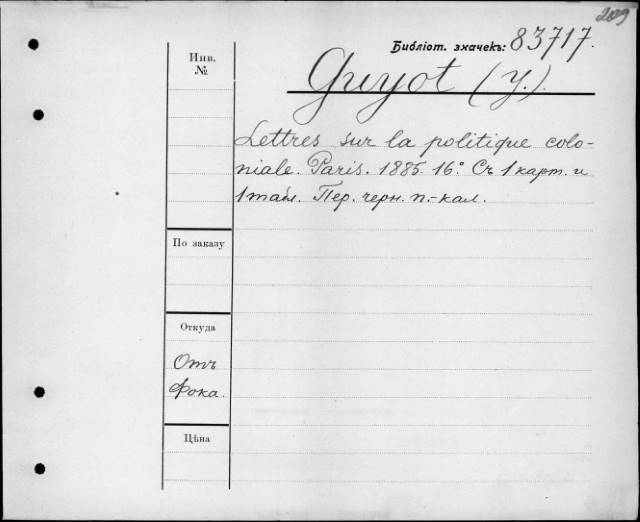 2009
Библіот. значекъ: 83717.
Guyot (Y.).
Инв.
№
Lettres sur la politique colo-
niale. Paris. 1885. 16°. Съ 1 карт. и
1 табл. Пер. черн. п.-кал.
По заказу
Откуда
Отъ
Фока.
Цѣна